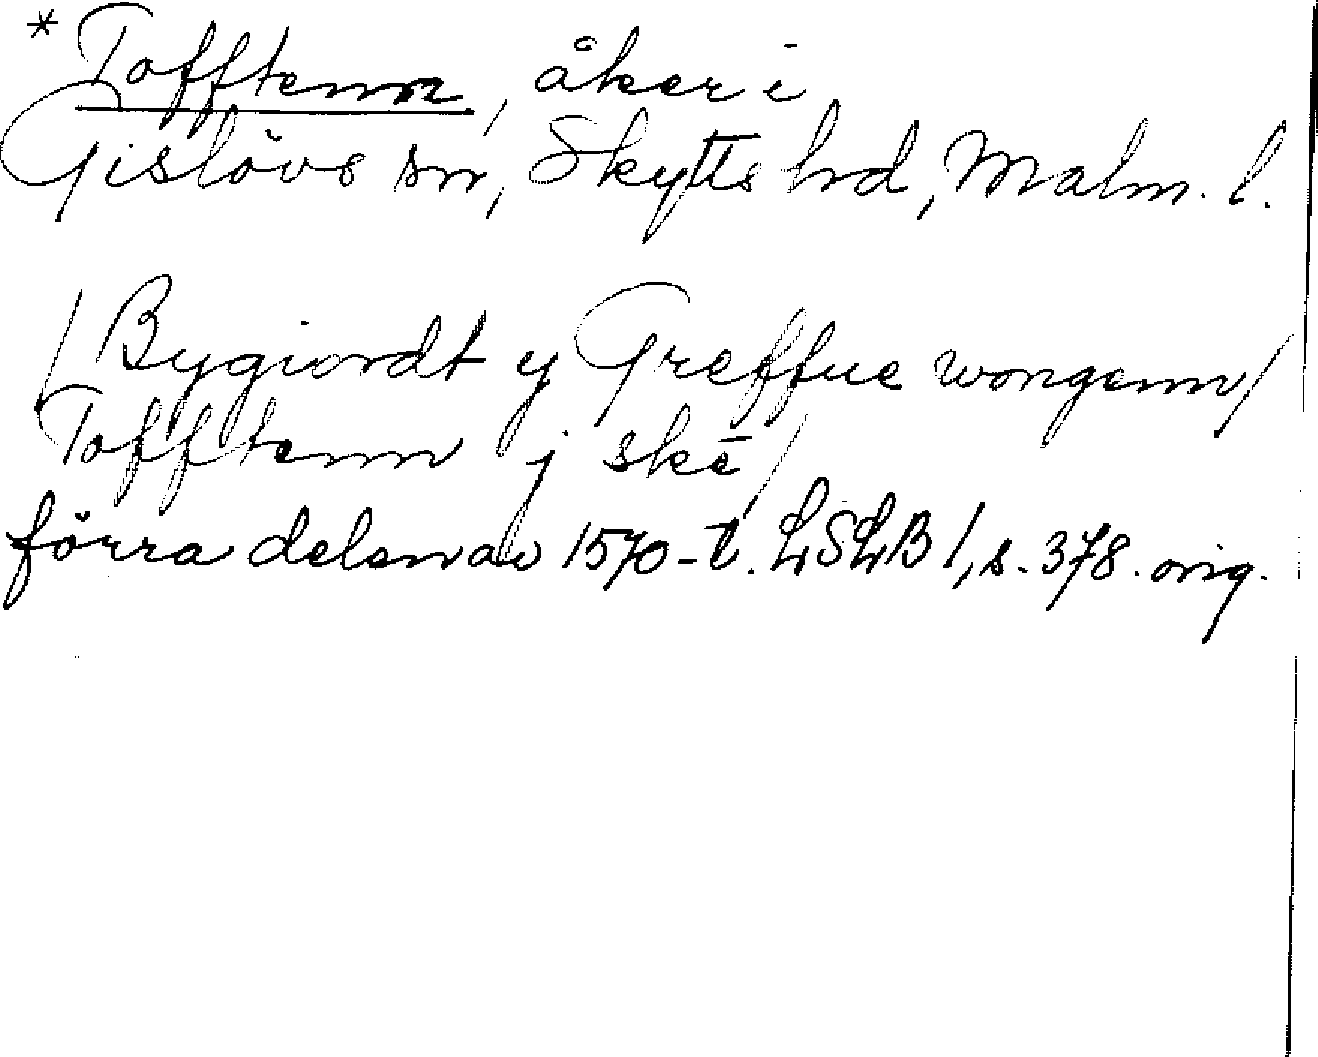 * Tofftenn, åker i
Gislövs sn, Skytts hd, Malm. l.
/ Bygiordt y Greffue wongenn /
Tofftenn j skē /
förra delen av 1570-t. LSLB 1, s. 378. orig.